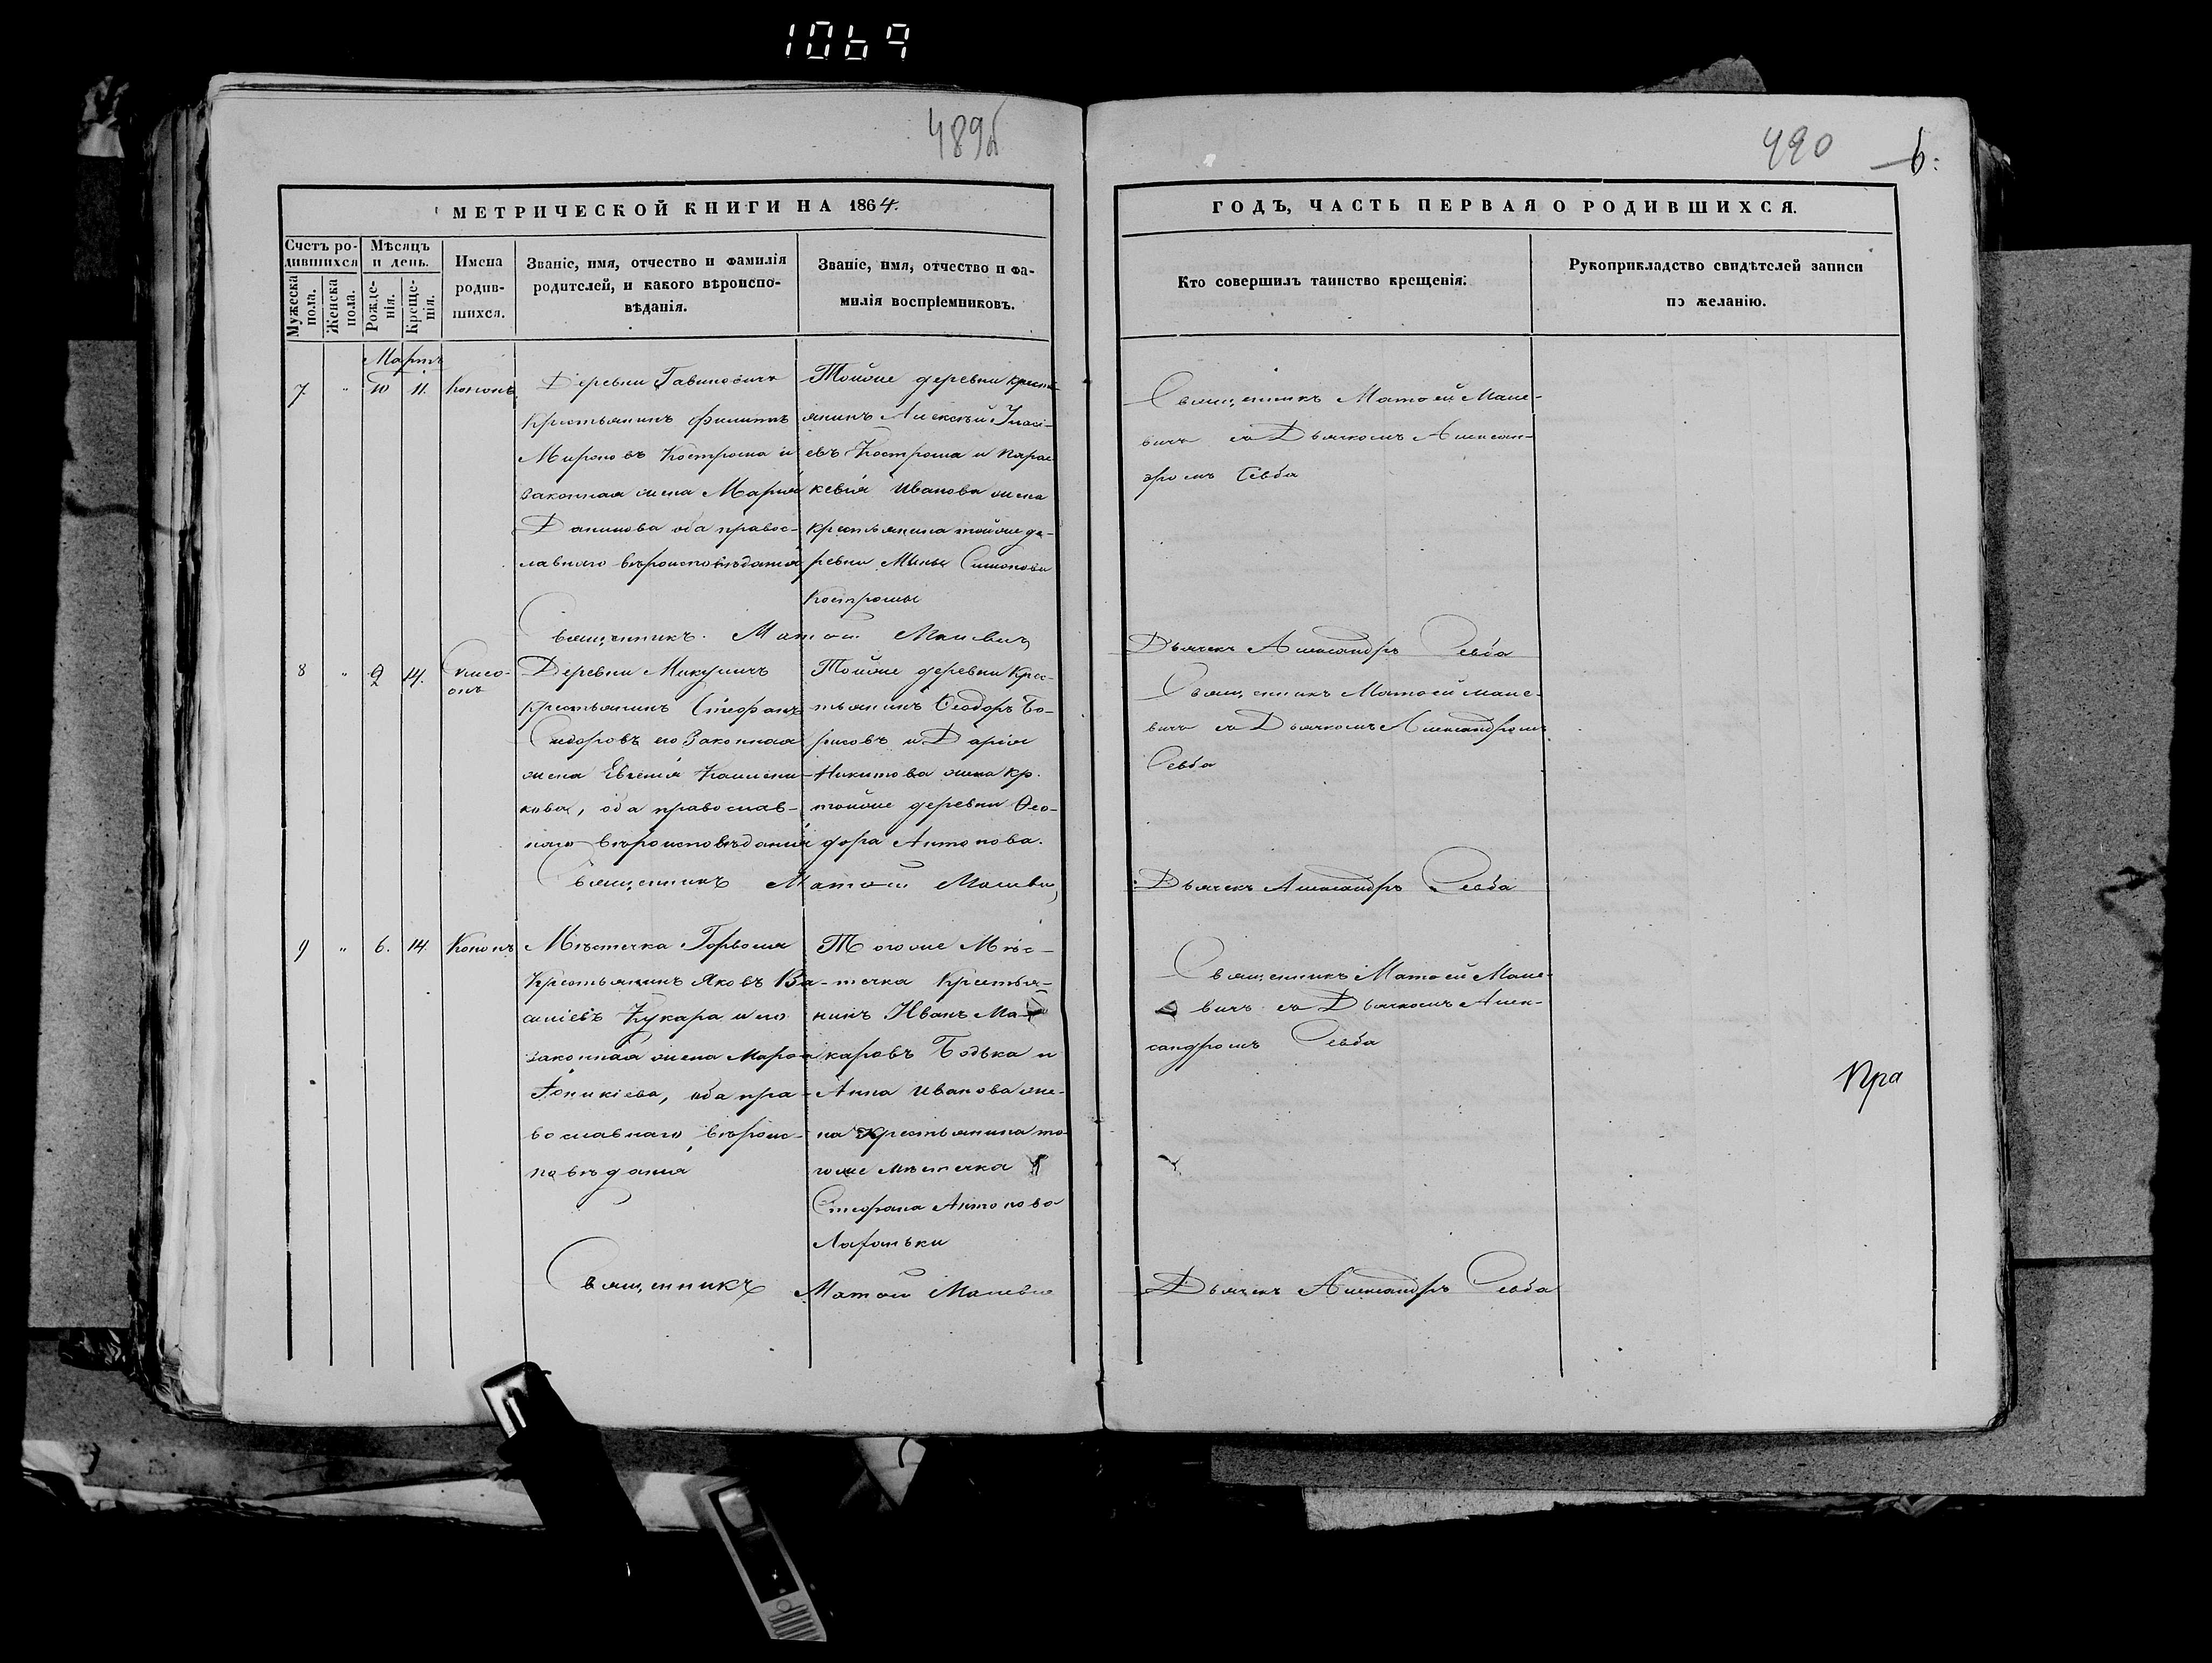 1069
489б
490
6.
МЕТРИЧЕСКОЙ КНИГИ НА 1864.
ГОДЪ, ЧАСТЬ ПЕРВАЯ О РОДИВШИХСЯ.
Счетъ ро-
дившихся
Мужеска
пола.
Женска
пола.
Мѣсяцъ
и день.
Рожде-
нія.
Креще-
нія.
Имена
родив-
шихся.
Званіе, имя, отчество и фамилія
родителей, и какого вѣроиспо-
вѣданія.
Званіе, имя, отчество и фа-
милія воспріемниковъ.
Кто совершилъ таинство крещенія.
Рукоприкладство свидѣтелей записи
по желанію.
Мартъ
7. " 10 11. Кононъ
Деревни
Крестьянинъ Филиппъ
Мироновъ Кострома и
законная жена Марія
Данилова оба правос-
лавнаго вѣроисповѣданія
Тойже деревни Кресть-
янинъ Алексѣй
евъ Кострома и Парас-
кевія Иванова жена
крестьянина тойже де-
ревни Мины Симонова
Костромы
Священникъ Матѳей Маневичъ
Священникъ Матѳей Мане-
вичъ съ Дьячкомъ Алексан-
дромъ Севба
Дьячекъ Александръ Севба
8 " 9 14.
Деревни Микуличъ
Крестьянинъ Стефанъ
Сидоровъ его Законная
жена Евгенія
кова, оба православ-
наго вѣроисповѣданія
Тойже деревни Крес-
тьянинъ Ѳеодоръ Бо-
рисовъ и Дарія
Никитова жена Кр.
тойже деревни Ѳео-
дора Антонова.
Священникъ Матѳей Маневичъ
Священникъ Матѳей Мане-
вичъ съ Дьячкомъ Александромъ
Севба
Дьячекъ Александръ Севба
9 " 6. 14. Кононъ
Мѣстечка Горволя
Крестьянинъ Яковъ Ва-
силіевъ Кукара и его
законная жена
Іоникіева, оба пра-
вославнаго вѣроис-
повѣданія
Тогоже Мѣс-
течка Крестья-
нинъ Иванъ Ма-
каровъ Бодька и
Анна Иванова же-
на Крестьянина то-
гоже мѣстечка
Стефана Антонова
Священникъ Матѳей Маневичъ
Священникъ Матѳей Мане-
вичъ съ Дьячкомъ Алек-
сандромъ Севба
Пра
Дьячекъ Александръ Севба